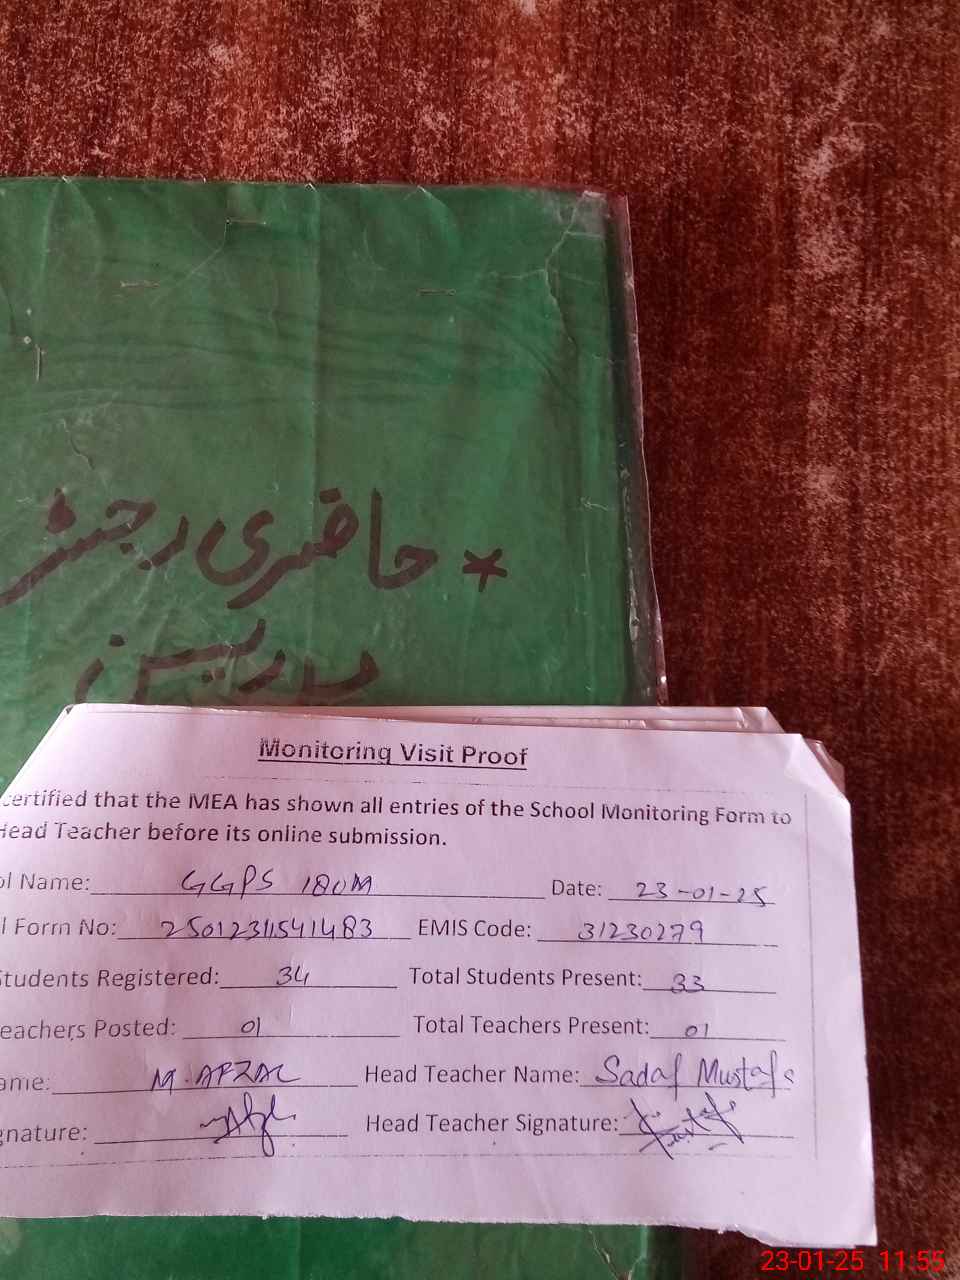 * حاضری رجسٹر
مدریسن
Monitoring Visit Proof
certified that the MEA has shown all entries of the School Monitoring Form to
Head Teacher before its online submission.
ol Name: GGPS 180M Date: 23-01-25
l Form No: 2501231541483 EMIS Code: 31230279
Students Registered: 34 Total Students Present: 33
eachers Posted: 01 Total Teachers Present: 01
ame: M. AFZAL Head Teacher Name: Sadaf Mustafa
gnature: Head Teacher Signature:
23-01-25 11:55